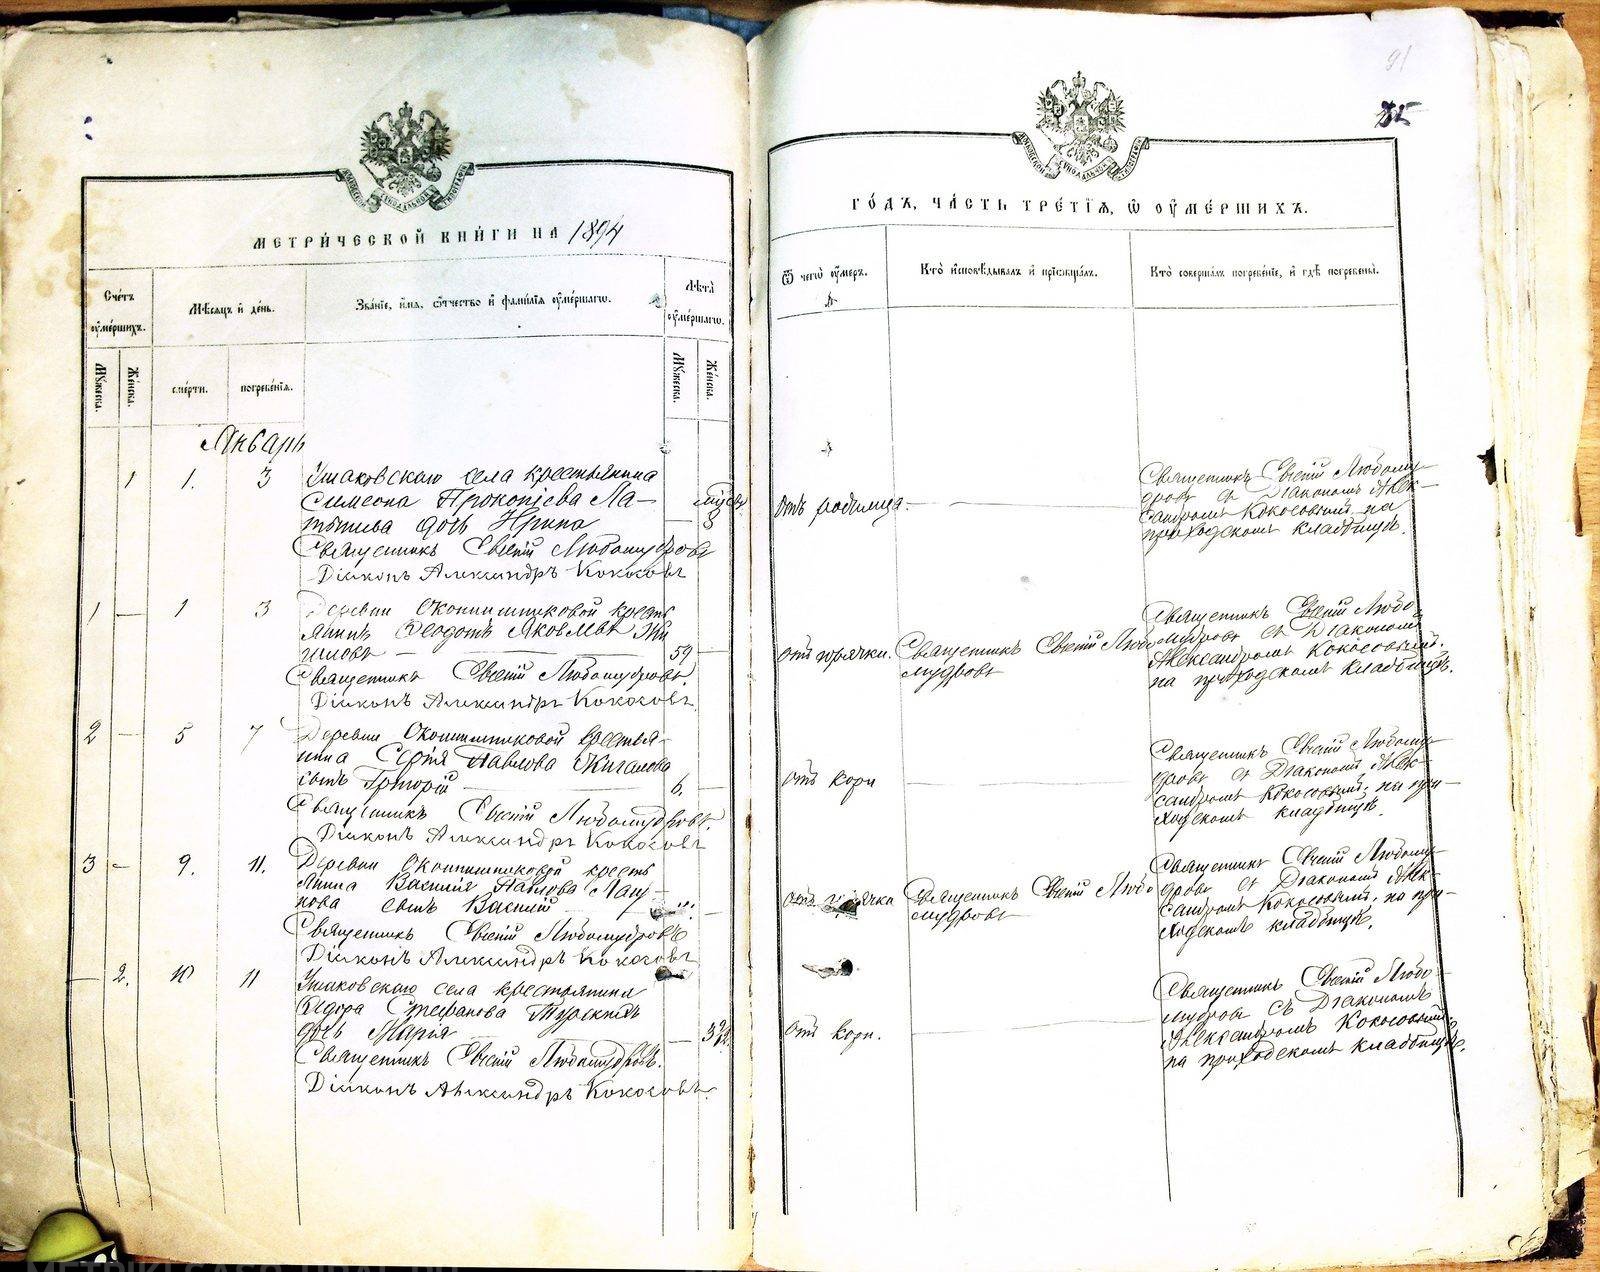 91
МЕТРИ́ЧЕСКОЙ КНИ́ГИ НА 1894
ГО́ДЪ, ЧА́СТЬ ТРЕ́ТІѦ, Ѿ ОУМЕ́РШИХЪ.
Сче́тъ оумершихъ.
Мѣсяцъ и день.
Зва́ніе, и́мѧ, ѻ́тчество и фами́лїѧ оуме́ршагѡ.
Лѣта оуме́ршагѡ.
Мужеска.
Же́нска.
сме́рти.
погребе́нїѧ.
Мужеска.
Же́нска.
Ѿ чегѡ̀ оу́меръ.
Кто̀ исповѣ́дывалъ и прїѡбща́лъ.
Кто̀ соверша́лъ погребе́нїе, и гдѣ̀ погребены̀.
Январь
1 1. 3 Ушаковскаго села крестьянина
Симеона Прокопіева Ла-
тышева дочь Ирина
Священникъ Евгеній Любомудровъ
Діаконъ Александръ Кокосовъ
отъ родимца.
Священникъ Евгеній Любому-
дровъ съ Діакономъ Алек-
сандромъ Кокосовымъ на
приходскомъ кладбищѣ.
1 — 1 3 Деревни Окотишниковой кресть
янинъ Ѳеодотъ Яковлевъ
59
Священникъ Евгеній Любомудровъ
Діаконъ Александръ Кокосовъ
отъ горячки. Священникъ Евгеній Любо
мудровъ
Священникъ Евгеній Любо-
мудровъ съ Діакономъ
Александромъ Кокосовымъ.
на приходскомъ кладбищѣ.
2 — 5 7 Деревни Окотишниковой крестья-
нина Сергія Павлова Жигалова
сынъ Григорій 6.
Священникъ Евгеній Любомудровъ.
Діаконъ Александръ Кокосовъ
отъ кори
Священникъ Евгеній Любому-
дровъ съ Діакономъ Алек-
сандромъ Кокосовымъ, на при-
ходскомъ кладбищѣ.
3 — 9. 11. Деревни Окотишниковой кресть
янина Василія Павлова
сынъ Василій
Священникъ Евгеній Любомудровъ
Діаконъ Александръ Кокосовъ
отъ горячки Священникъ Евгеній Любо
мудровъ
Священникъ Евгеній Любому-
дровъ съ Діакономъ Алек-
сандромъ Кокосовымъ, на при-
ходскомъ кладбищѣ.
— 2. 10 11 Ушаковскаго села крестьянина
Ѳедора Стефанова
дочь Марія
Священникъ Евгеній Любомудровъ.
Діаконъ Александръ Кокосовъ.
отъ кори.
Священникъ Евгеній Любо-
мудровъ съ Діакономъ
Александромъ Кокосовымъ
на приходскомъ кладбищѣ.